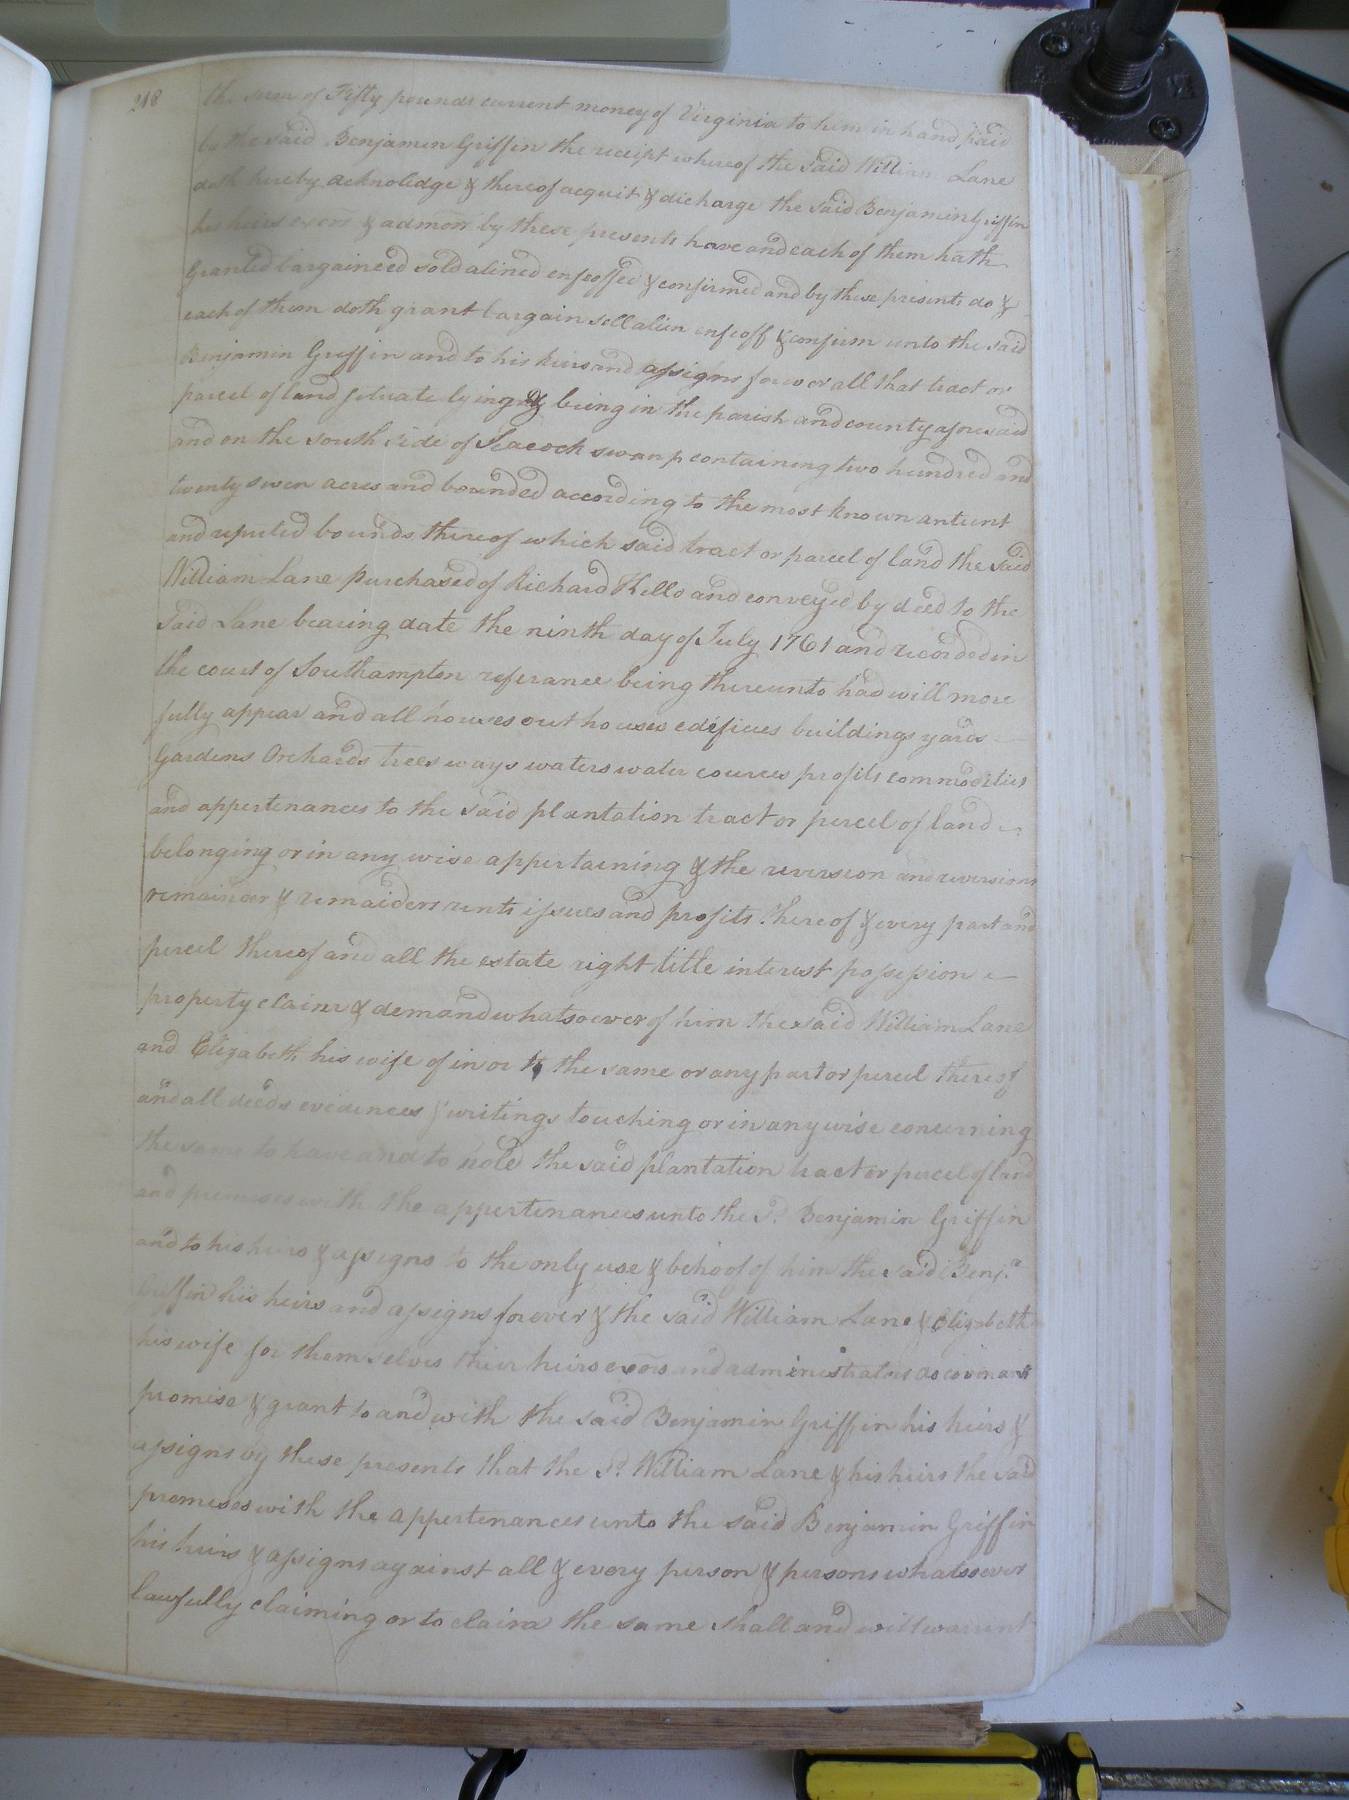 218
the sum of Fifty pounds current money of Virginia to him in hand paid
by the said Benjamin Griffin the receipt whereof the said William Lane
doth hereby acknolidge & thereof acquit & discharge the said Benjamin Griffin
his heirs exors & admors by these presents have and each of them hath
Granted bargained sold aliened enfeoffed & confirmed and by these presents do &
each of them doth grant bargain sell alien enfeoff & confirm unto the said
Benjamin Griffin and to his heirs and assigns forever all that tract or
parcel of land situate lying & being in the parish and county aforesaid
and on the south side of Seacock swamp containing two hundred and
twenty seven acres and bounded according to the most known antient
and reputed bounds thereof which said tract or parcel of land the said
William Lane purchased of Richard Kello and conveyed by deed to the
said Lane bearing date the ninth day of July 1761 and recorded in
the court of Southampton referance being thereunto had will more
fully appear and all houses outhouses edifices buildings yards
Gardens Orchards trees ways waters water cources profits commodities
and appertenances to the said plantation tract or percel of land
belonging or in any wise appertaining & the reversion and reversions
remainder & remaiders rents issues and profits thereof & every part and
percel thereof and all the estate right title interest possession
property claim & demand whatsoever of him the said William Lane
and Elizabeth his wife of in or to the same or any part or percel thereof
and all deeds evidences & writings touching or in any wise concerning
the same to have and to hold the said plantation tract or percel of land
and premises with the appertenances unto the Sd. Benjamin Griffin
and to his heirs & assigns to the only use & behoof of him the said Benja.
Griffin his heirs and assigns forever & the said William Lane & Elizabeth
his wife for themselves their heirs exors and administrators do covinant
promise & grant to and with the said Benjamin Griffin his heirs &
assigns by these presents that the Sd. William Lane & his heirs the said
premises with the appertenances unto the said Benjamin Griffin
his heirs & assigns against all & every person & persons whatsoever
lawfully claiming or to claim the same shall and will warrent